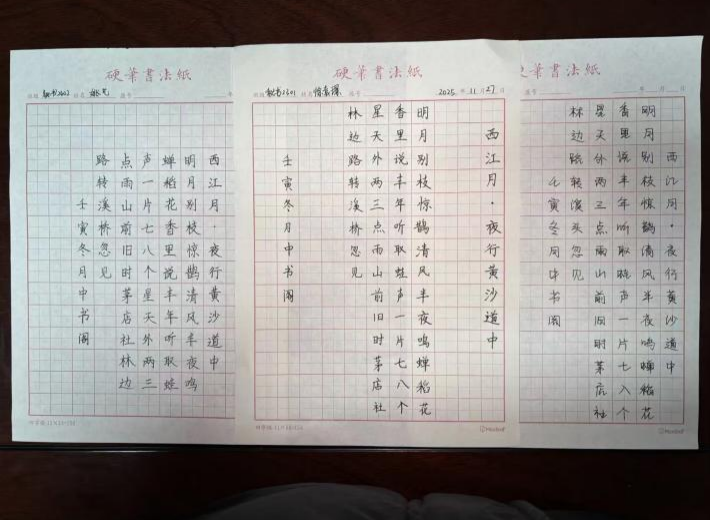 硬筆書法紙
班级 姓名 座号 年
西江月·夜行黄沙道中
明月别枝惊鹊清风半夜鸣
蝉稻花香里说丰年听取蛙
声一片七八个星天外两三
点雨山前旧时茅店社林边
路转溪桥忽见
壬寅冬月中书阁
硬筆書法紙
班级 姓名 座号 2025 年 11 月 27 日
西江月·夜行黄沙道中
明月别枝惊鹊清风半夜鸣蝉稻花
香里说丰年听取蛙声一片七八个
星天外两三点雨山前旧时茅店社
林边路转溪桥忽见
壬寅冬月中书阁
筆書法紙
年 月 日
西江月·夜行黄沙道中
明月别枝惊鹊清风半夜鸣蝉稻花
香里说丰年听取蛙声一片七八个
星天外两三点雨山前旧时茅店社
林边路转溪头忽见
壬寅冬月中书阁